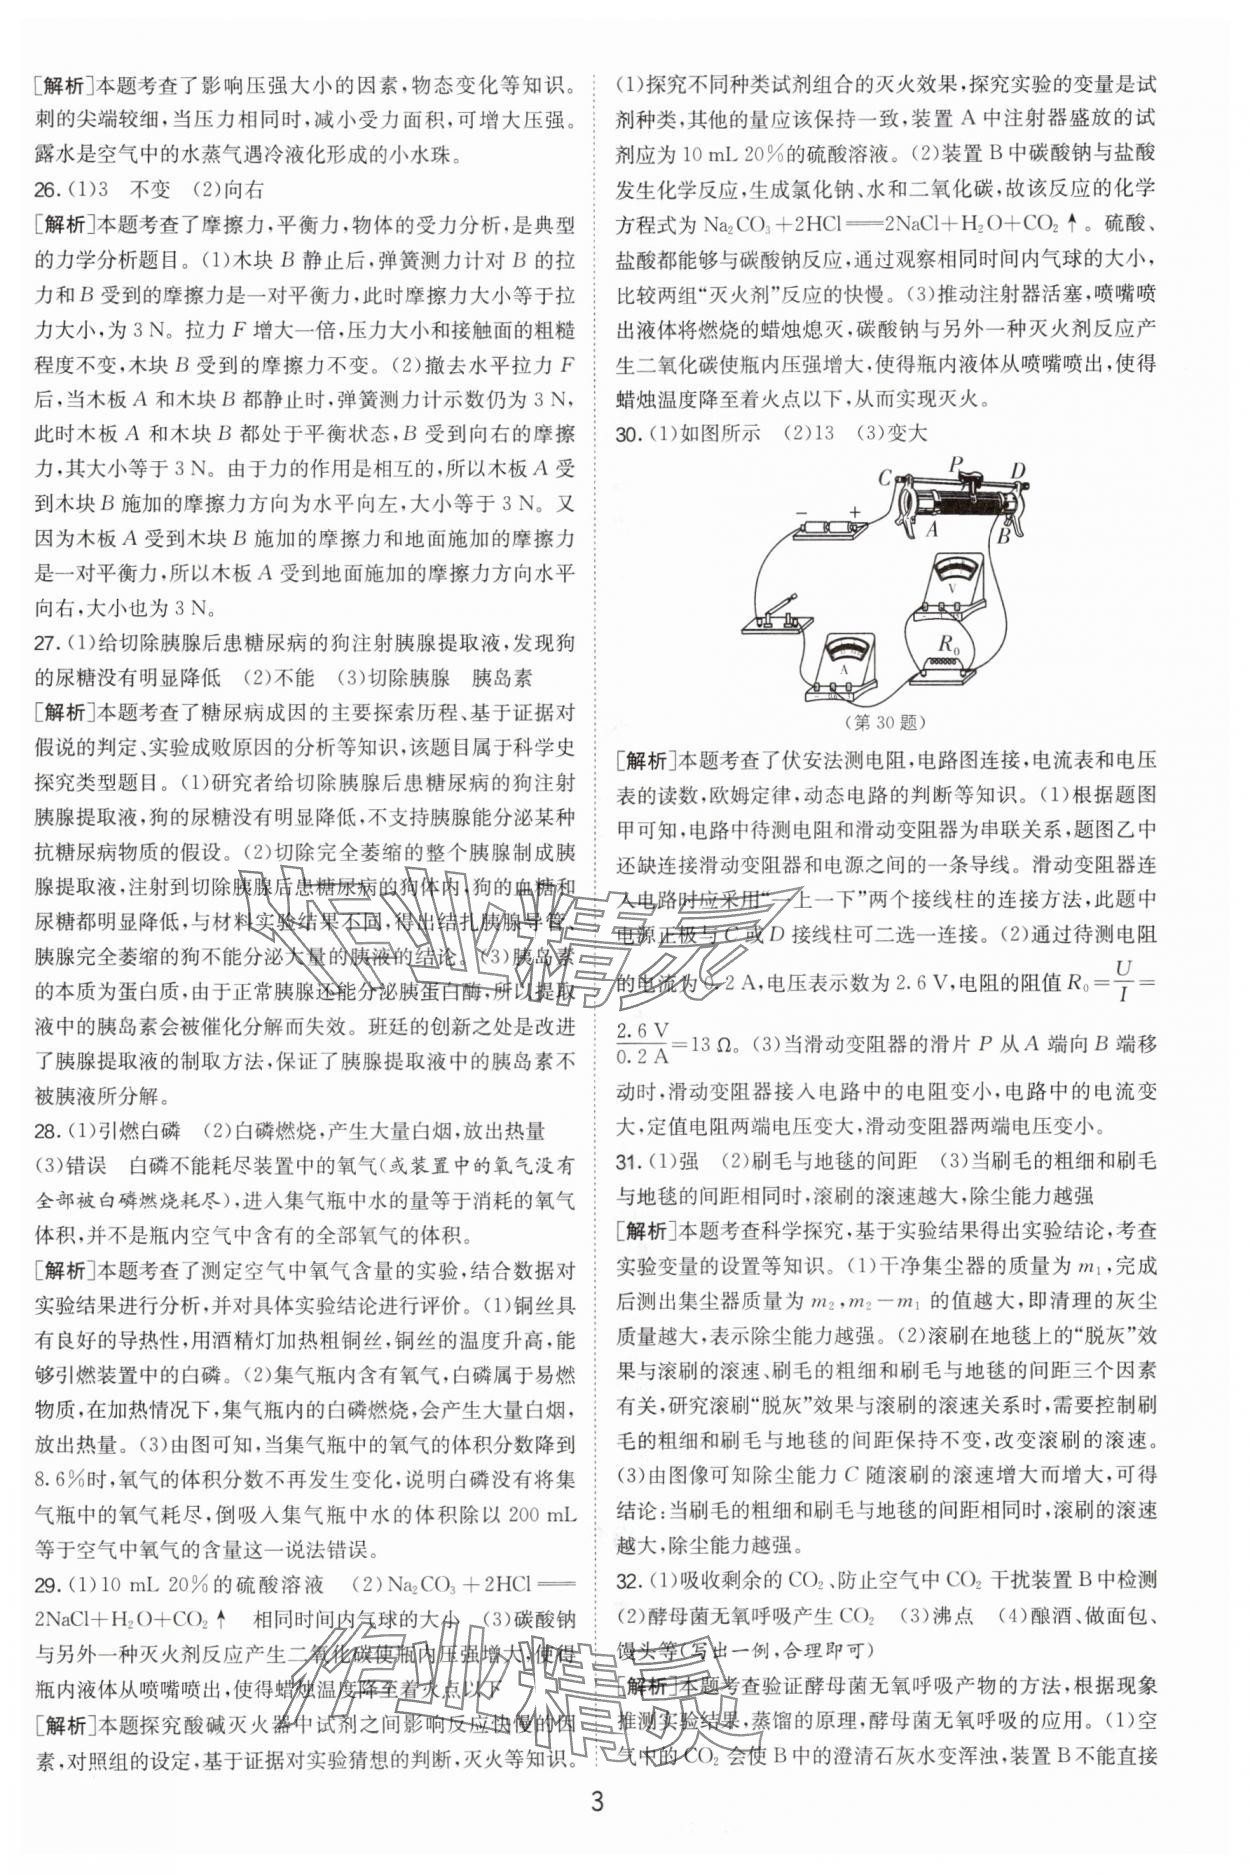 [解析]本题考查了影响压强大小的因素,物态变化等知识。
刺的尖端较细,当压力相同时,减小受力面积,可增大压强。
露水是空气中的水蒸气遇冷液化形成的小水珠。
26.(1)3 不变 (2)向右
[解析]本题考查了摩擦力,平衡力,物体的受力分析,是典型
的力学分析题目。(1)木块 B 静止后,弹簧测力计对 B 的拉
力和 B 受到的摩擦力是一对平衡力,此时摩擦力大小等于拉
力大小,为 3 N。拉力 F 增大一倍,压力大小和接触面的粗糙
程度不变,木块 B 受到的摩擦力不变。(2)撤去水平拉力 F
后,当木板 A 和木块 B 都静止时,弹簧测力计示数仍为 3 N,
此时木板 A 和木块 B 都处于平衡状态,B 受到向右的摩擦
力,其大小等于 3 N。由于力的作用是相互的,所以木板 A 受
到木块 B 施加的摩擦力方向为水平向左,大小等于 3 N。又
因为木板 A 受到木块 B 施加的摩擦力和地面施加的摩擦力
是一对平衡力,所以木板 A 受到地面施加的摩擦力方向水平
向右,大小也为 3 N。
27.(1)给切除胰腺后患糖尿病的狗注射胰腺提取液,发现狗
的尿糖没有明显降低 (2)不能 (3)切除胰腺 胰岛素
[解析]本题考查了糖尿病成因的主要探索历程、基于证据对
假说的判定、实验成败原因的分析等知识,该题目属于科学史
探究类型题目。(1)研究者给切除胰腺后患糖尿病的狗注射
胰腺提取液,狗的尿糖没有明显降低,不支持胰腺能分泌某种
抗糖尿病物质的假设。(2)切除完全萎缩的整个胰腺制成胰
腺提取液,注射到切除胰腺后患糖尿病的狗体内,狗的血糖和
尿糖都明显降低,与材料实验结果不同,得出结扎胰腺导管、
胰腺完全萎缩的狗不能分泌大量的胰液的结论。(3)胰岛素
的本质为蛋白质,由于正常胰腺还能分泌胰蛋白酶,所以提取
液中的胰岛素会被催化分解而失效。班廷的创新之处是改进
了胰腺提取液的制取方法,保证了胰腺提取液中的胰岛素不
被胰液所分解。
28.(1)引燃白磷 (2)白磷燃烧,产生大量白烟,放出热量
(3)错误 白磷不能耗尽装置中的氧气(或装置中的氧气没有
全部被白磷燃烧耗尽),进入集气瓶中水的量等于消耗的氧气
体积,并不是瓶内空气中含有的全部氧气的体积。
[解析]本题考查了测定空气中氧气含量的实验,结合数据对
实验结果进行分析,并对具体实验结论进行评价。(1)铜丝具
有良好的导热性,用酒精灯加热粗铜丝,铜丝的温度升高,能
够引燃装置中的白磷。(2)集气瓶内含有氧气,白磷属于易燃
物质,在加热情况下,集气瓶内的白磷燃烧,会产生大量白烟,
放出热量。(3)由图可知,当集气瓶中的氧气的体积分数降到
8.6%时,氧气的体积分数不再发生变化,说明白磷没有将集
气瓶中的氧气耗尽,倒吸入集气瓶中水的体积除以 200 mL
等于空气中氧气的含量这一说法错误。
29.(1)10 mL 20%的硫酸溶液 (2)Na₂CO₃+2HCl══
2NaCl+H₂O+CO₂↑ 相同时间内气球的大小 (3)碳酸钠
与另外一种灭火剂反应产生二氧化碳使瓶内压强增大,使得
瓶内液体从喷嘴喷出,使得蜡烛温度降至着火点以下
[解析]本题探究酸碱灭火器中试剂之间影响反应快慢的因
素,对照组的设定,基于证据对实验猜想的判断,灭火等知识。
(1)探究不同种类试剂组合的灭火效果,探究实验的变量是试
剂种类,其他的量应该保持一致,装置 A 中注射器盛放的试
剂应为 10 mL 20%的硫酸溶液。(2)装置 B 中碳酸钠与盐酸
发生化学反应,生成氯化钠、水和二氧化碳,故该反应的化学
方程式为 Na₂CO₃+2HCl══2NaCl+H₂O+CO₂↑。硫酸、
盐酸都能够与碳酸钠反应,通过观察相同时间内气球的大小,
比较两组“灭火剂”反应的快慢。(3)推动注射器活塞,喷嘴喷
出液体将燃烧的蜡烛熄灭,碳酸钠与另外一种灭火剂反应产
生二氧化碳使瓶内压强增大,使得瓶内液体从喷嘴喷出,使得
蜡烛温度降至着火点以下,从而实现灭火。
30.(1)如图所示 (2)13 (3)变大
C P D
− +
A B
V
R₀
A
− 0.6 3
(第 30 题)
[解析]本题考查了伏安法测电阻,电路图连接,电流表和电压
表的读数,欧姆定律,动态电路的判断等知识。(1)根据题图
甲可知,电路中待测电阻和滑动变阻器为串联关系,题图乙中
还缺连接滑动变阻器和电源之间的一条导线。滑动变阻器连
入电路时应采用“一上一下”两个接线柱的连接方法,此题中
电源正极与 C 或 D 接线柱可二选一连接。(2)通过待测电阻
的电流为 0.2 A,电压表示数为 2.6 V,电阻的阻值 R₀=U/I=
2.6 V/0.2 A=13 Ω。(3)当滑动变阻器的滑片 P 从 A 端向 B 端移
动时,滑动变阻器接入电路中的电阻变小,电路中的电流变
大,定值电阻两端电压变大,滑动变阻器两端电压变小。
31.(1)强 (2)刷毛与地毯的间距 (3)当刷毛的粗细和刷毛
与地毯的间距相同时,滚刷的滚速越大,除尘能力越强
[解析]本题考查科学探究,基于实验结果得出实验结论,考查
实验变量的设置等知识。(1)干净集尘器的质量为 m₁,完成
后测出集尘器质量为 m₂,m₂−m₁ 的值越大,即清理的灰尘
质量越大,表示除尘能力越强。(2)滚刷在地毯上的“脱灰”效
果与滚刷的滚速、刷毛的粗细和刷毛与地毯的间距三个因素
有关,研究滚刷“脱灰”效果与滚刷的滚速关系时,需要控制刷
毛的粗细和刷毛与地毯的间距保持不变,改变滚刷的滚速。
(3)由图像可知除尘能力 C 随滚刷的滚速增大而增大,可得
结论:当刷毛的粗细和刷毛与地毯的间距相同时,滚刷的滚速
越大,除尘能力越强。
32.(1)吸收剩余的 CO₂、防止空气中 CO₂ 干扰装置 B 中检测
(2)酵母菌无氧呼吸产生 CO₂ (3)沸点 (4)酿酒、做面包、
馒头等(写出一例,合理即可)
[解析]本题考查验证酵母菌无氧呼吸产物的方法,根据现象
推测实验结果,蒸馏的原理,酵母菌无氧呼吸的应用。(1)空
气中的 CO₂ 会使 B 中的澄清石灰水变浑浊,装置 B 不能直接
3
作业精灵
作业精灵